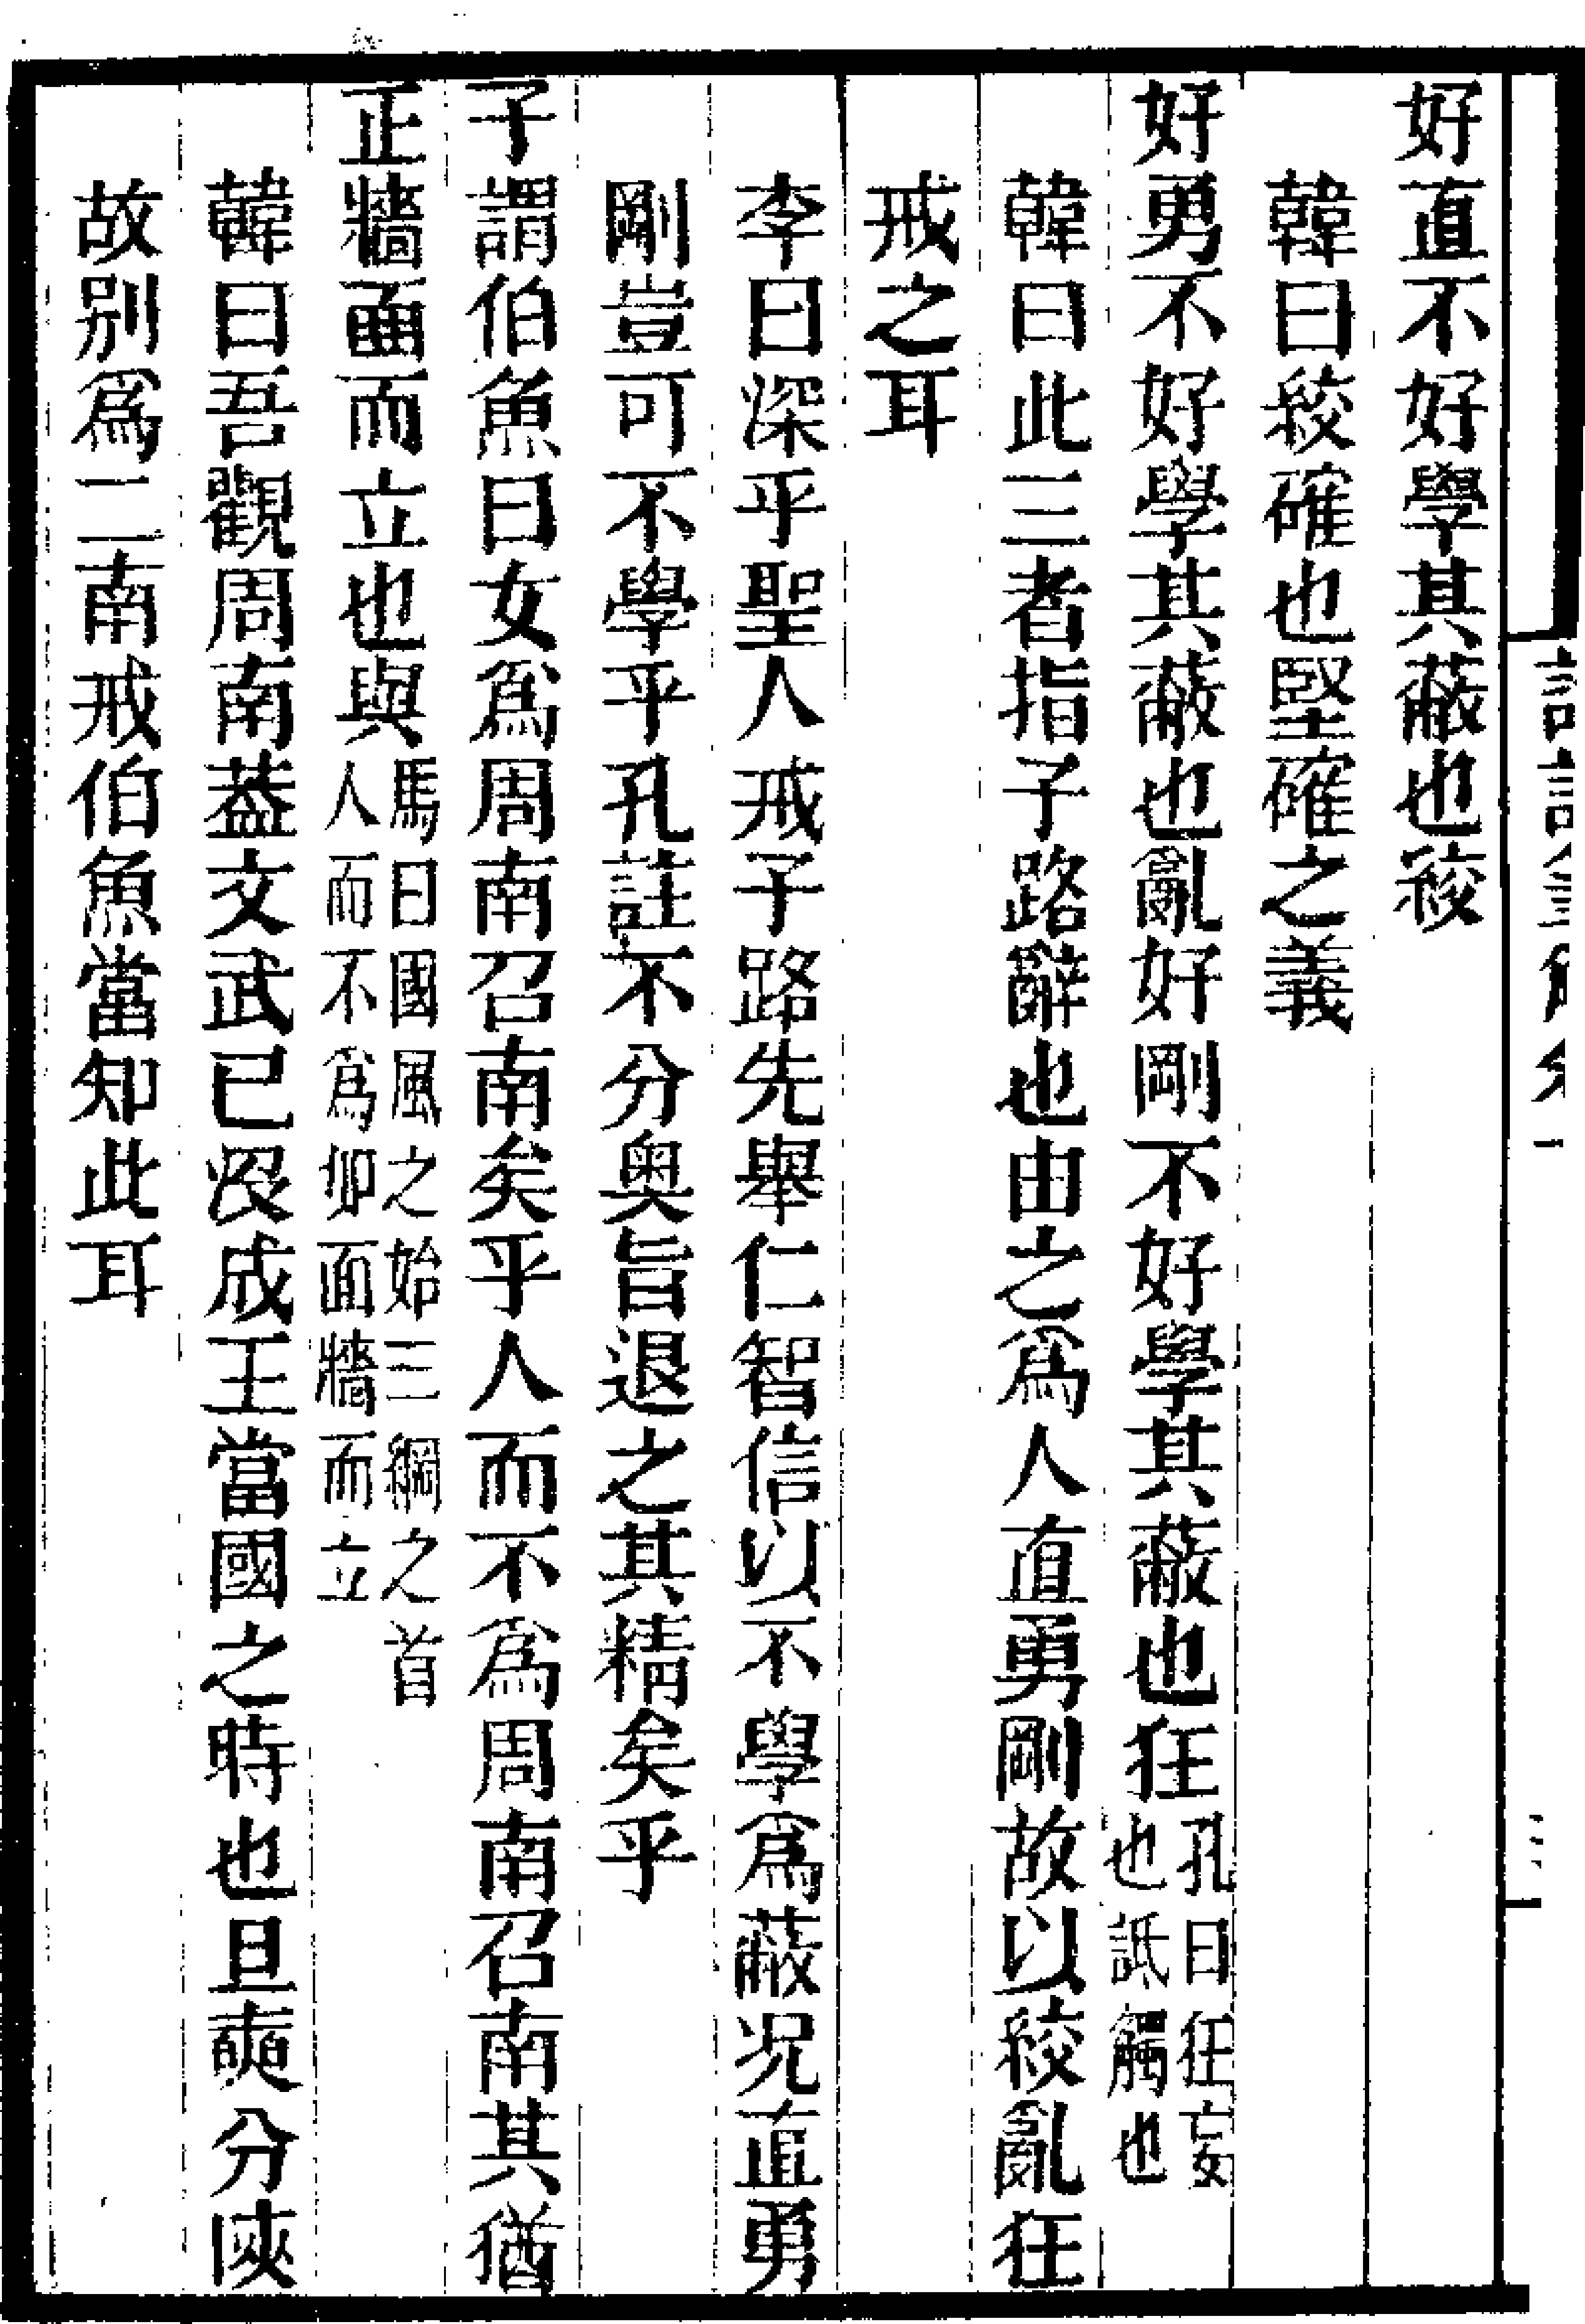 好直不好學其蔽也絞
韓曰絞確也堅確之義
好勇不好學其蔽也亂好剛不好學其蔽也狂孔曰狂妄也詆觸也
韓曰此三者指子路辭也由之爲人直勇剛故以絞亂狂
戒之耳
李曰深乎聖人戒子路先舉仁智信以不學爲蔽况直勇
剛豈可不學乎孔註不分奥旨退之其精矣乎
子謂伯魚曰女爲周南召南矣乎人而不爲周南召南其猶
正牆面而立也與馬曰國風之始三綱之首人而不爲仰面牆而立
韓曰吾觀周南葢文武已沒成王當國之時也旦奭分陝
故别爲二南戒伯魚當知此耳